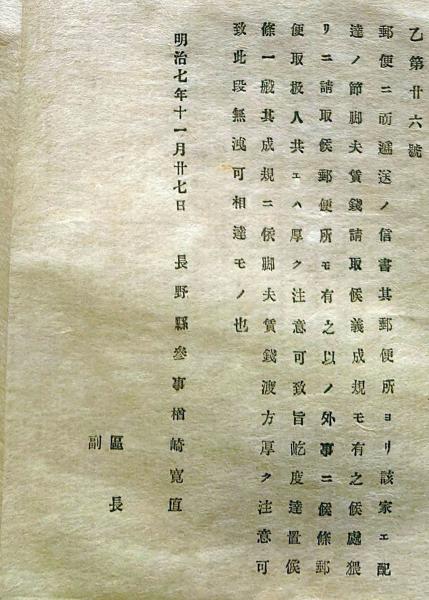 乙第廿六號
郵便ニ而遞送ノ信書其郵便所ヨリ該家ェ配
達ノ節脚夫賃錢請取候義成規モ有之候處猥
リニ請取候郵便所モ有之以ノ外事ニ候條郵
便取扱人共ェハ厚ク注意可致旨屹度達置候
條一般其成規ニ依脚夫賃錢渡方厚ク注意可
致此段無洩可相達モノ也
明治七年十一月廿七日 長野縣參事楢崎寬直
區長
副